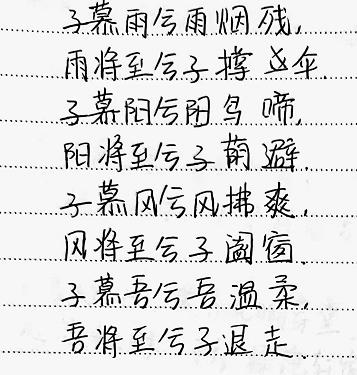 子慕雨兮雨烟残,
雨将至兮子撑伞.
子慕阳兮阳鸟啼,
阳将至兮子荫避.
子慕风兮风拂爽,
风将至兮子阖窗.
子慕吾兮吾温柔,
吾将至兮子退走.